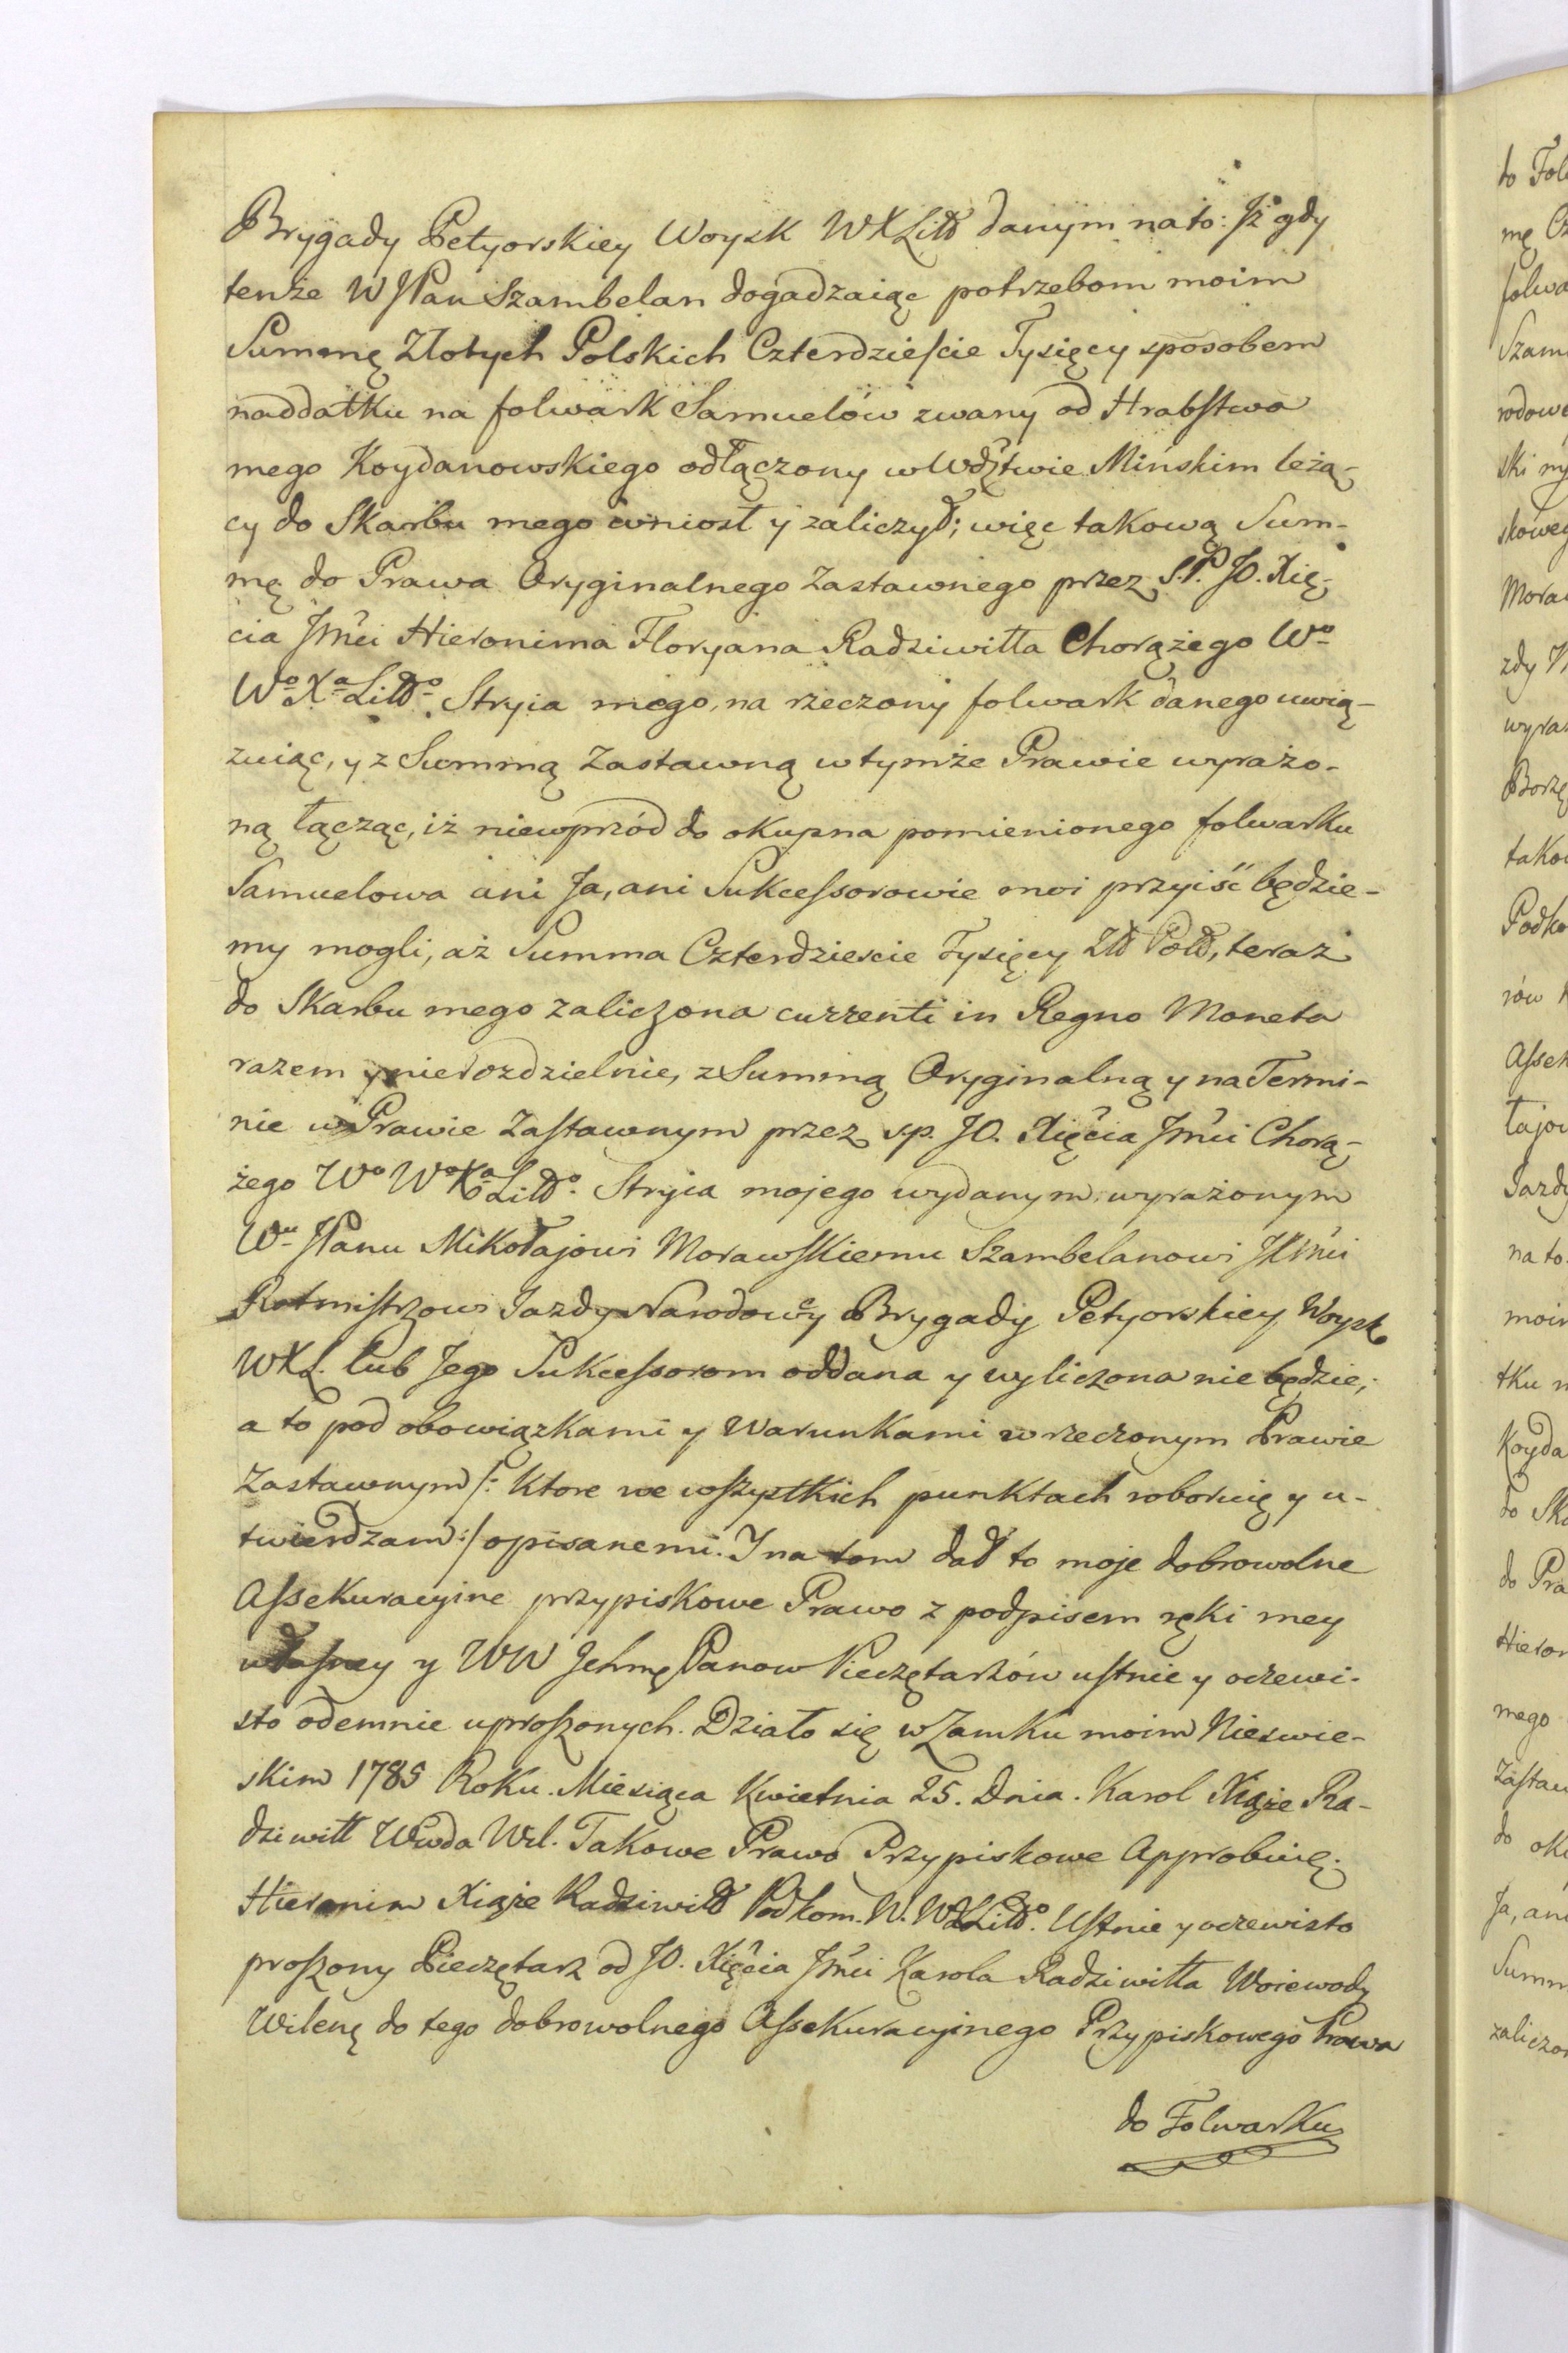 Brygady Petyorskiey Woysk WXLitt danym na to: Iż gdy
tenże WJPan Szambelan dogadzaiąc potrzebom moim
Summę Złotych Polskich Czterdzieście Tysięcy sposobem
naddatku na folwark Samuelów zwany od Hrabstwa
mego Koydanowskiego odłączony w Wdztwie Mińskim leżą-
cy do Skarbu mego wniosł y zaliczył; więc takową Sum-
mę do Prawa Oryginalnego Zastawnego przez S.P. JO. Xię-
cia Jmci Hieronima Floryana Radziwiłła Chorążego Wo
Wo Xa Litto. Stryia mego, na rzeczony folwark danego uwią-
zuiąc, y z Summą Zastawną w tymże Prawie wyrażo-
ną łącząc, iż niewprzód do okupna pomienionego folwarku
Samuelowa ani Ja, ani Sukcessorowie moi przyiść będzie-
my mogli, aż Summa Czterdziescie Tysięcy Złł Poll, teraz
do Skarbu mego zaliczona currenti in Regno Moneta
razem y nierozdzielnie, z Summą Oryginalną y na Termi-
nie w Prawie Zastawnym przez s.p. JO. Xięcia Jmci Chorą-
żego Wo Wo Xa Litto. Stryia mojego wydanym, wyrażonym
Wu JPanu Mikołajowi Morawskiemu Szambelanowi JKMci
Rotmistrzowi Jazdy Narodowey Brygady Petyorskiey Woysk
WXL. lub Jego Sukcessorom oddana y wyliczona nie będzie;
a to pod obowiązkami y Warunkami w rzeczonym Prawie
Zastawnym /: Ktore we wszystkich punktach roboruię y u-
twierdzam :/ opisanemi. I na tom dał to moje dobrowolne
Assekuracyine przypiskowe Prawo z podpisem ręki mey
własney y WW Jchmę Panow Pieczętarzów ustnie y oczewi-
sto odemnie uproszonych. Działo się w Zamku moim Nieswie-
skim 1785 Roku. Miesiąca Kwietnia 25. Dnia. Karol Xiąże Ra-
dziwiłł Wwda Wil. Takowe Prawo Przypiskowe Approbuię.
Hieronim Xiąże Radziwiłł Podkom. W. WXLitto. Ustnie y oczewisto
proszony Pieczętarz od JO. Xięcia Jmci Karola Radziwiłła Woiewody
Wileńę do tego dobrowolnego Assekuracyinego Przypiskowego Prawa
do Folwarku